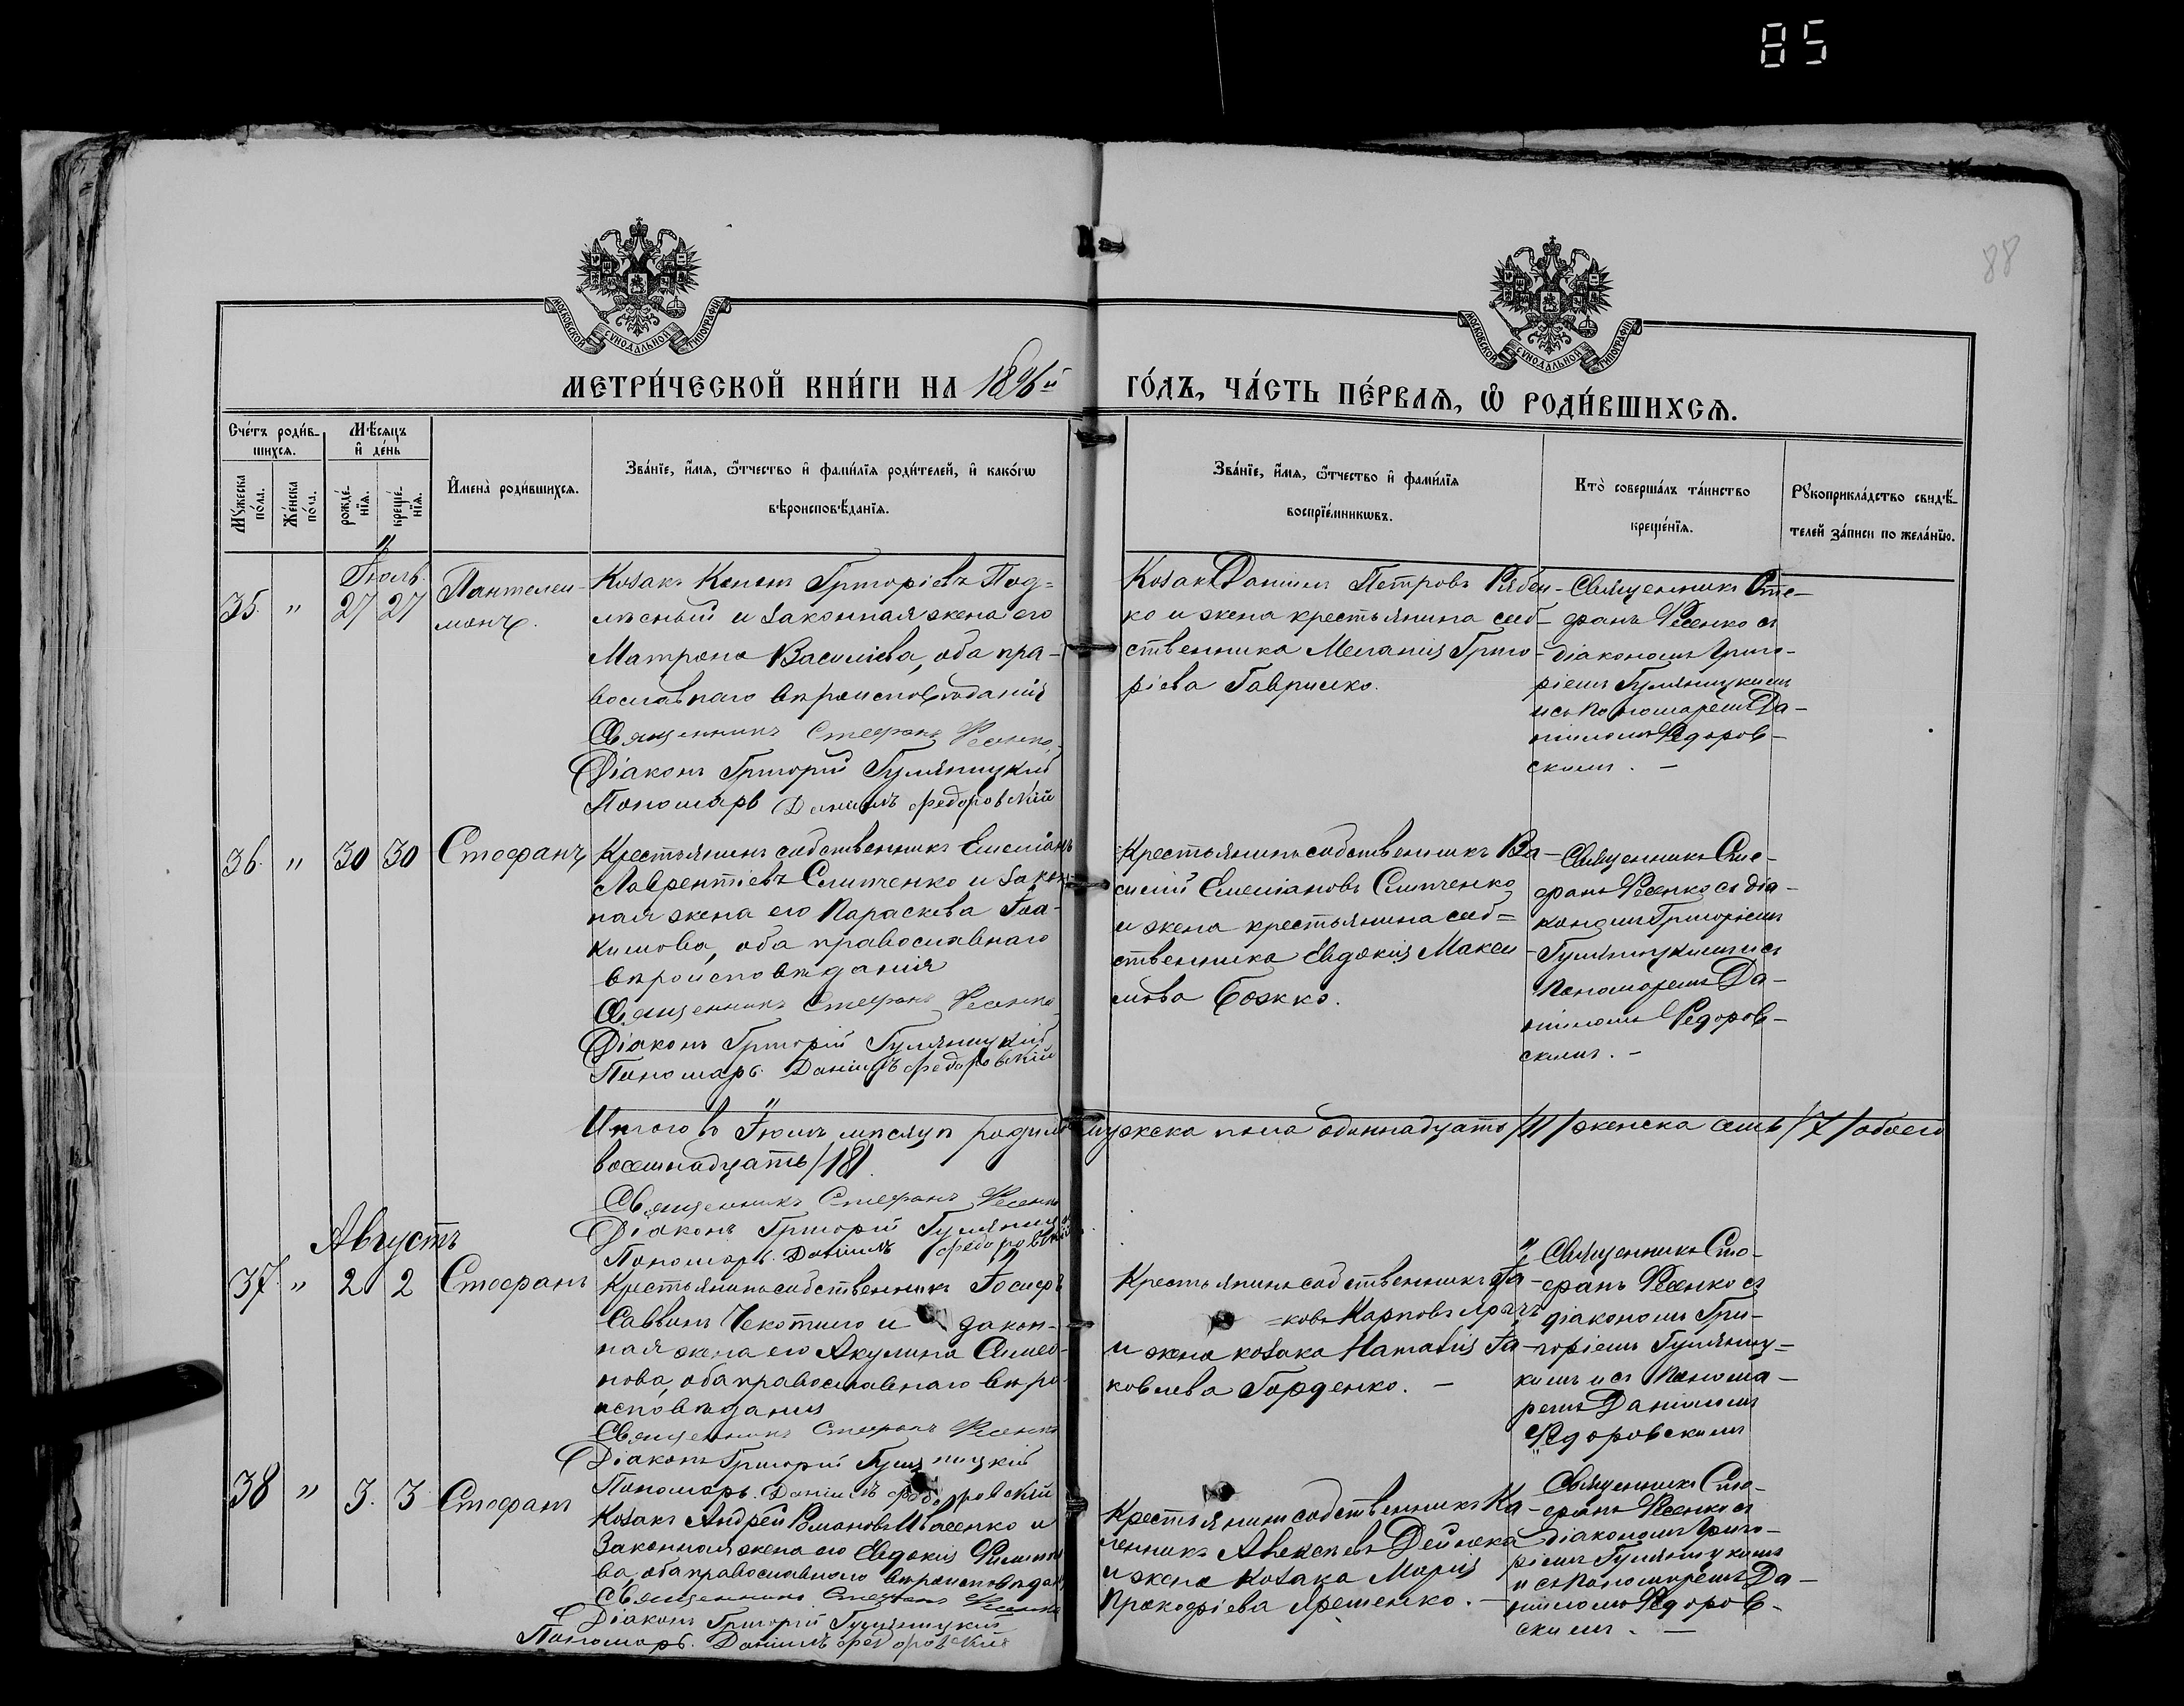 85
88
МОСКОВСКОЙ СѴНОДАЛЬНОЙ ТИПОГРАФІИ
МОСКОВСКОЙ СѴНОДАЛЬНОЙ ТИПОГРАФІИ
МЕТРИ́ЧЕСКОЙ КНИ́ГИ НА 1896й ГО́ДЪ, ЧА́СТЬ ПЕ́РВАѦ, Ѡ҆ РОДИ́ВШИХСѦ.
Сче́тъ роди́в-
шихсѧ.
Мѣ́сѧцъ
и҆ де́нь
Мꙋ́жеска по́ла.
Же́нска по́ла.
рожде́-
нїѧ.
креще́-
нїѧ.
И҆мена̀ роди́вшихсѧ.
Зва́нїе, и҆́мѧ, ѻ҆́тчество и҆ фами́лїѧ роди́телей, и҆ како́гѡ
вѣроисповѣ́данїѧ.
Зва́нїе, и҆́мѧ, ѻ҆́тчество и҆ фами́лїѧ
воспрїе́мникѡвъ.
Кто̀ соверша́лъ та́инство
креще́нїѧ.
Рꙋкоприкла́дство свидѣ́-
телей за́писи по жела́нїю.
Іюль.
35. " 27 27
Пантелеи-
монъ.
Козакъ Кононъ Григоріевъ Под=
лѣсный и законная жена его
Матрона Василіева, оба пра-
вославнаго вѣроисповѣданія
Священникъ Стефанъ Фесенко
Діаконъ Григорій Гуляницкій
Пономарь Даніилъ Федоровскій
Козакъ Даніилъ Петровъ Рябен-
ко и жена крестьянина соб-
ственника Меланія Григо-
ріева Гаврилко.
Священникъ Сте-
фанъ Фесенко съ
діакономъ Григо-
ріемъ Гуляницкимъ
и съ пономаремъ Да-
ніиломъ Федоров-
скимъ. —
36. " 30 30 Стефанъ
Крестьянинъ собственникъ Емеліанъ
Лаврентіевъ Слипченко и закон-
ная жена его Параскева Іоа-
кимова, оба православнаго
вѣроисповѣданія
Священникъ Стефанъ Фесенко
Діаконъ Григорій Гуляницкій
Пономарь Даніилъ Федоровскій
Крестьянинъ собственникъ Ва-
силій Емеліановъ Слипченко
и жена крестьянина соб=
ственника Евдокія Макси-
мова Божко.
Священникъ Сте-
фанъ Фесенко съ діа-
кономъ Григоріемъ
Гуляницкимъ и съ
пономаремъ Да-
ніиломъ Федоров-
скимъ. -
Итого въ Іюлѣ мѣсяцѣ родилось мужеска пола одиннадцать /11/ женска семь /7/ обоего
восемнадцать /18/.
Священникъ Стефанъ Фесенко
Діаконъ Григорій Гуляницкій
Пономарь Даніилъ Федоровскій
Августъ
37. " 2 2 Стефанъ
Крестьянинъ собственникъ Іосифъ
Саввинъ Чекотило и закон-
ная жена его Акулина Симео-
нова, оба православнаго вѣро-
исповѣданія
Священникъ Стефанъ Фесенко
Діаконъ Григорій Гуляницкій
Пономарь Даніилъ Федоровскій
Крестьянинъ собственникъ Іа-
=ковъ Карповъ
и жена козака Наталія Іа-
ковлева Горденко. —
Священникъ Сте-
фанъ Фесенко съ
діакономъ Гри-
горіемъ Гуляниц=
кимъ и съ понома-
ремъ Даніиломъ
Федоровскимъ
38 " 3. 3 Стефанъ
Козакъ Андрей Романовъ Ивасенко и
законная жена его Евдокія Филиппо-
ва, оба православнаго вѣроисповѣдан.
Священникъ Стефанъ Фесенко
Діаконъ Григорій Гуляницкій
Пономарь Даніилъ Федоровскій
Крестьянинъ собственникъ Ка-
ленникъ Алексѣевъ Дейнека
и жена козака Марія
Прокофіева Ярешенко. —
Священникъ Сте-
фанъ Фесенко съ
діакономъ Григо-
ріемъ Гуляницкимъ
и съ пономаремъ Да-
ніиломъ Федоров-
скимъ. —